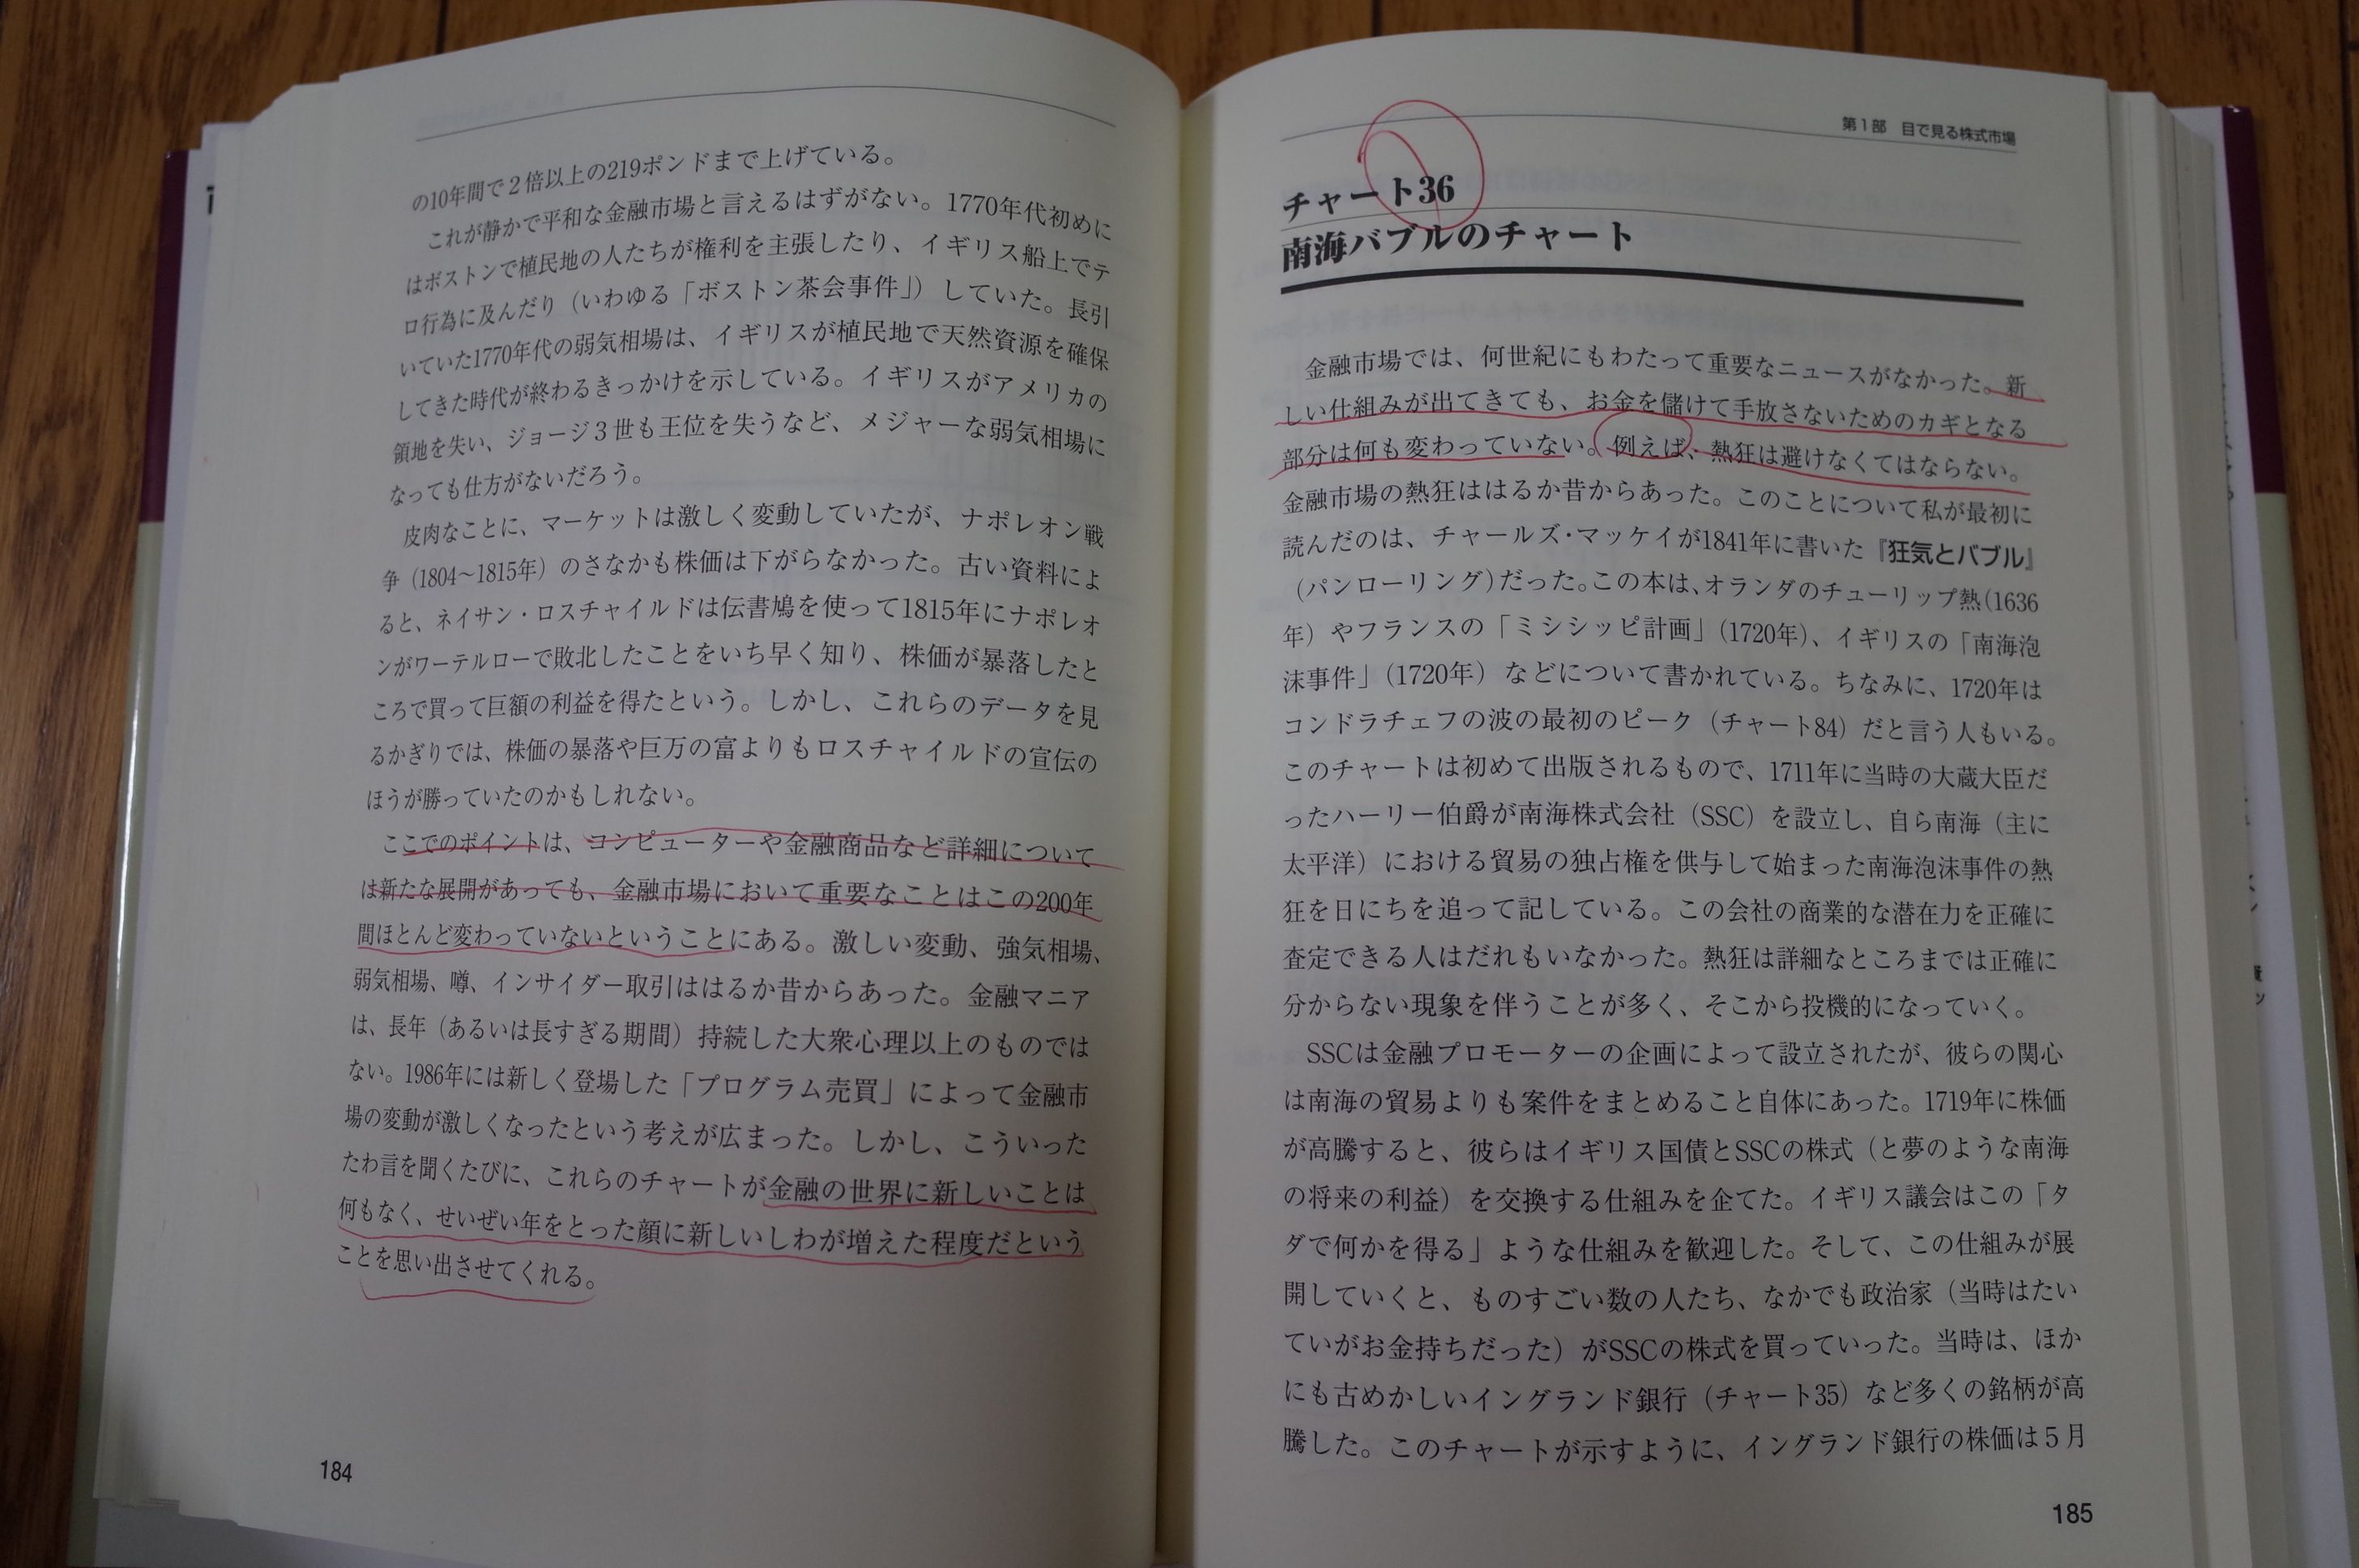 の10年間で2倍以上の219ポンドまで上げている。
これが静かで平和な金融市場と言えるはずがない。1770年代初めに
はボストンで植民地の人たちが権利を主張したり、イギリス船上でテ
ロ行為に及んだり（いわゆる「ボストン茶会事件」）していた。長引
いていた1770年代の弱気相場は、イギリスが植民地で天然資源を確保
してきた時代が終わるきっかけを示している。イギリスがアメリカの
領地を失い、ジョージ3世も王位を失うなど、メジャーな弱気相場に
なっても仕方がないだろう。
皮肉なことに、マーケットは激しく変動していたが、ナポレオン戦
争（1804～1815年）のさなかも株価は下がらなかった。古い資料によ
ると、ネイサン・ロスチャイルドは伝書鳩を使って1815年にナポレオ
ンがワーテルローで敗北したことをいち早く知り、株価が暴落したと
ころで買って巨額の利益を得たという。しかし、これらのデータを見
るかぎりでは、株価の暴落や巨万の富よりもロスチャイルドの宣伝の
ほうが勝っていたのかもしれない。
ここでのポイントは、コンピューターや金融商品など詳細について
は新たな展開があっても、金融市場において重要なことはこの200年
間ほとんど変わっていないということにある。激しい変動、強気相場、
弱気相場、噂、インサイダー取引ははるか昔からあった。金融マニア
は、長年（あるいは長すぎる期間）持続した大衆心理以上のものでは
ない。1986年には新しく登場した「プログラム売買」によって金融市
場の変動が激しくなったという考えが広まった。しかし、こういった
たわ言を聞くたびに、これらのチャートが金融の世界に新しいことは
何もなく、せいぜい年をとった顔に新しいしわが増えた程度だという
ことを思い出させてくれる。
184
第1部 目で見る株式市場
チャート36
南海バブルのチャート
金融市場では、何世紀にもわたって重要なニュースがなかった。新
しい仕組みが出てきても、お金を儲けて手放さないためのカギとなる
部分は何も変わっていない。例えば、熱狂は避けなくてはならない。
金融市場の熱狂ははるか昔からあった。このことについて私が最初に
読んだのは、チャールズ・マッケイが1841年に書いた『狂気とバブル』
（パンローリング）だった。この本は、オランダのチューリップ熱（1636
年）やフランスの「ミシシッピ計画」（1720年）、イギリスの「南海泡
沫事件」（1720年）などについて書かれている。ちなみに、1720年は
コンドラチェフの波の最初のピーク（チャート84）だと言う人もいる。
このチャートは初めて出版されるもので、1711年に当時の大蔵大臣だ
ったハーリー伯爵が南海株式会社（SSC）を設立し、自ら南海（主に
太平洋）における貿易の独占権を供与して始まった南海泡沫事件の熱
狂を日にちを追って記している。この会社の商業的な潜在力を正確に
査定できる人はだれもいなかった。熱狂は詳細なところまでは正確に
分からない現象を伴うことが多く、そこから投機的になっていく。
SSCは金融プロモーターの企画によって設立されたが、彼らの関心
は南海の貿易よりも案件をまとめること自体にあった。1719年に株価
が高騰すると、彼らはイギリス国債とSSCの株式（と夢のような南海
の将来の利益）を交換する仕組みを企てた。イギリス議会はこの「タ
ダで何かを得る」ような仕組みを歓迎した。そして、この仕組みが展
開していくと、ものすごい数の人たち、なかでも政治家（当時はたい
ていがお金持ちだった）がSSCの株式を買っていった。当時は、ほか
にも古めかしいイングランド銀行（チャート35）など多くの銘柄が高
騰した。このチャートが示すように、イングランド銀行の株価は5月
185